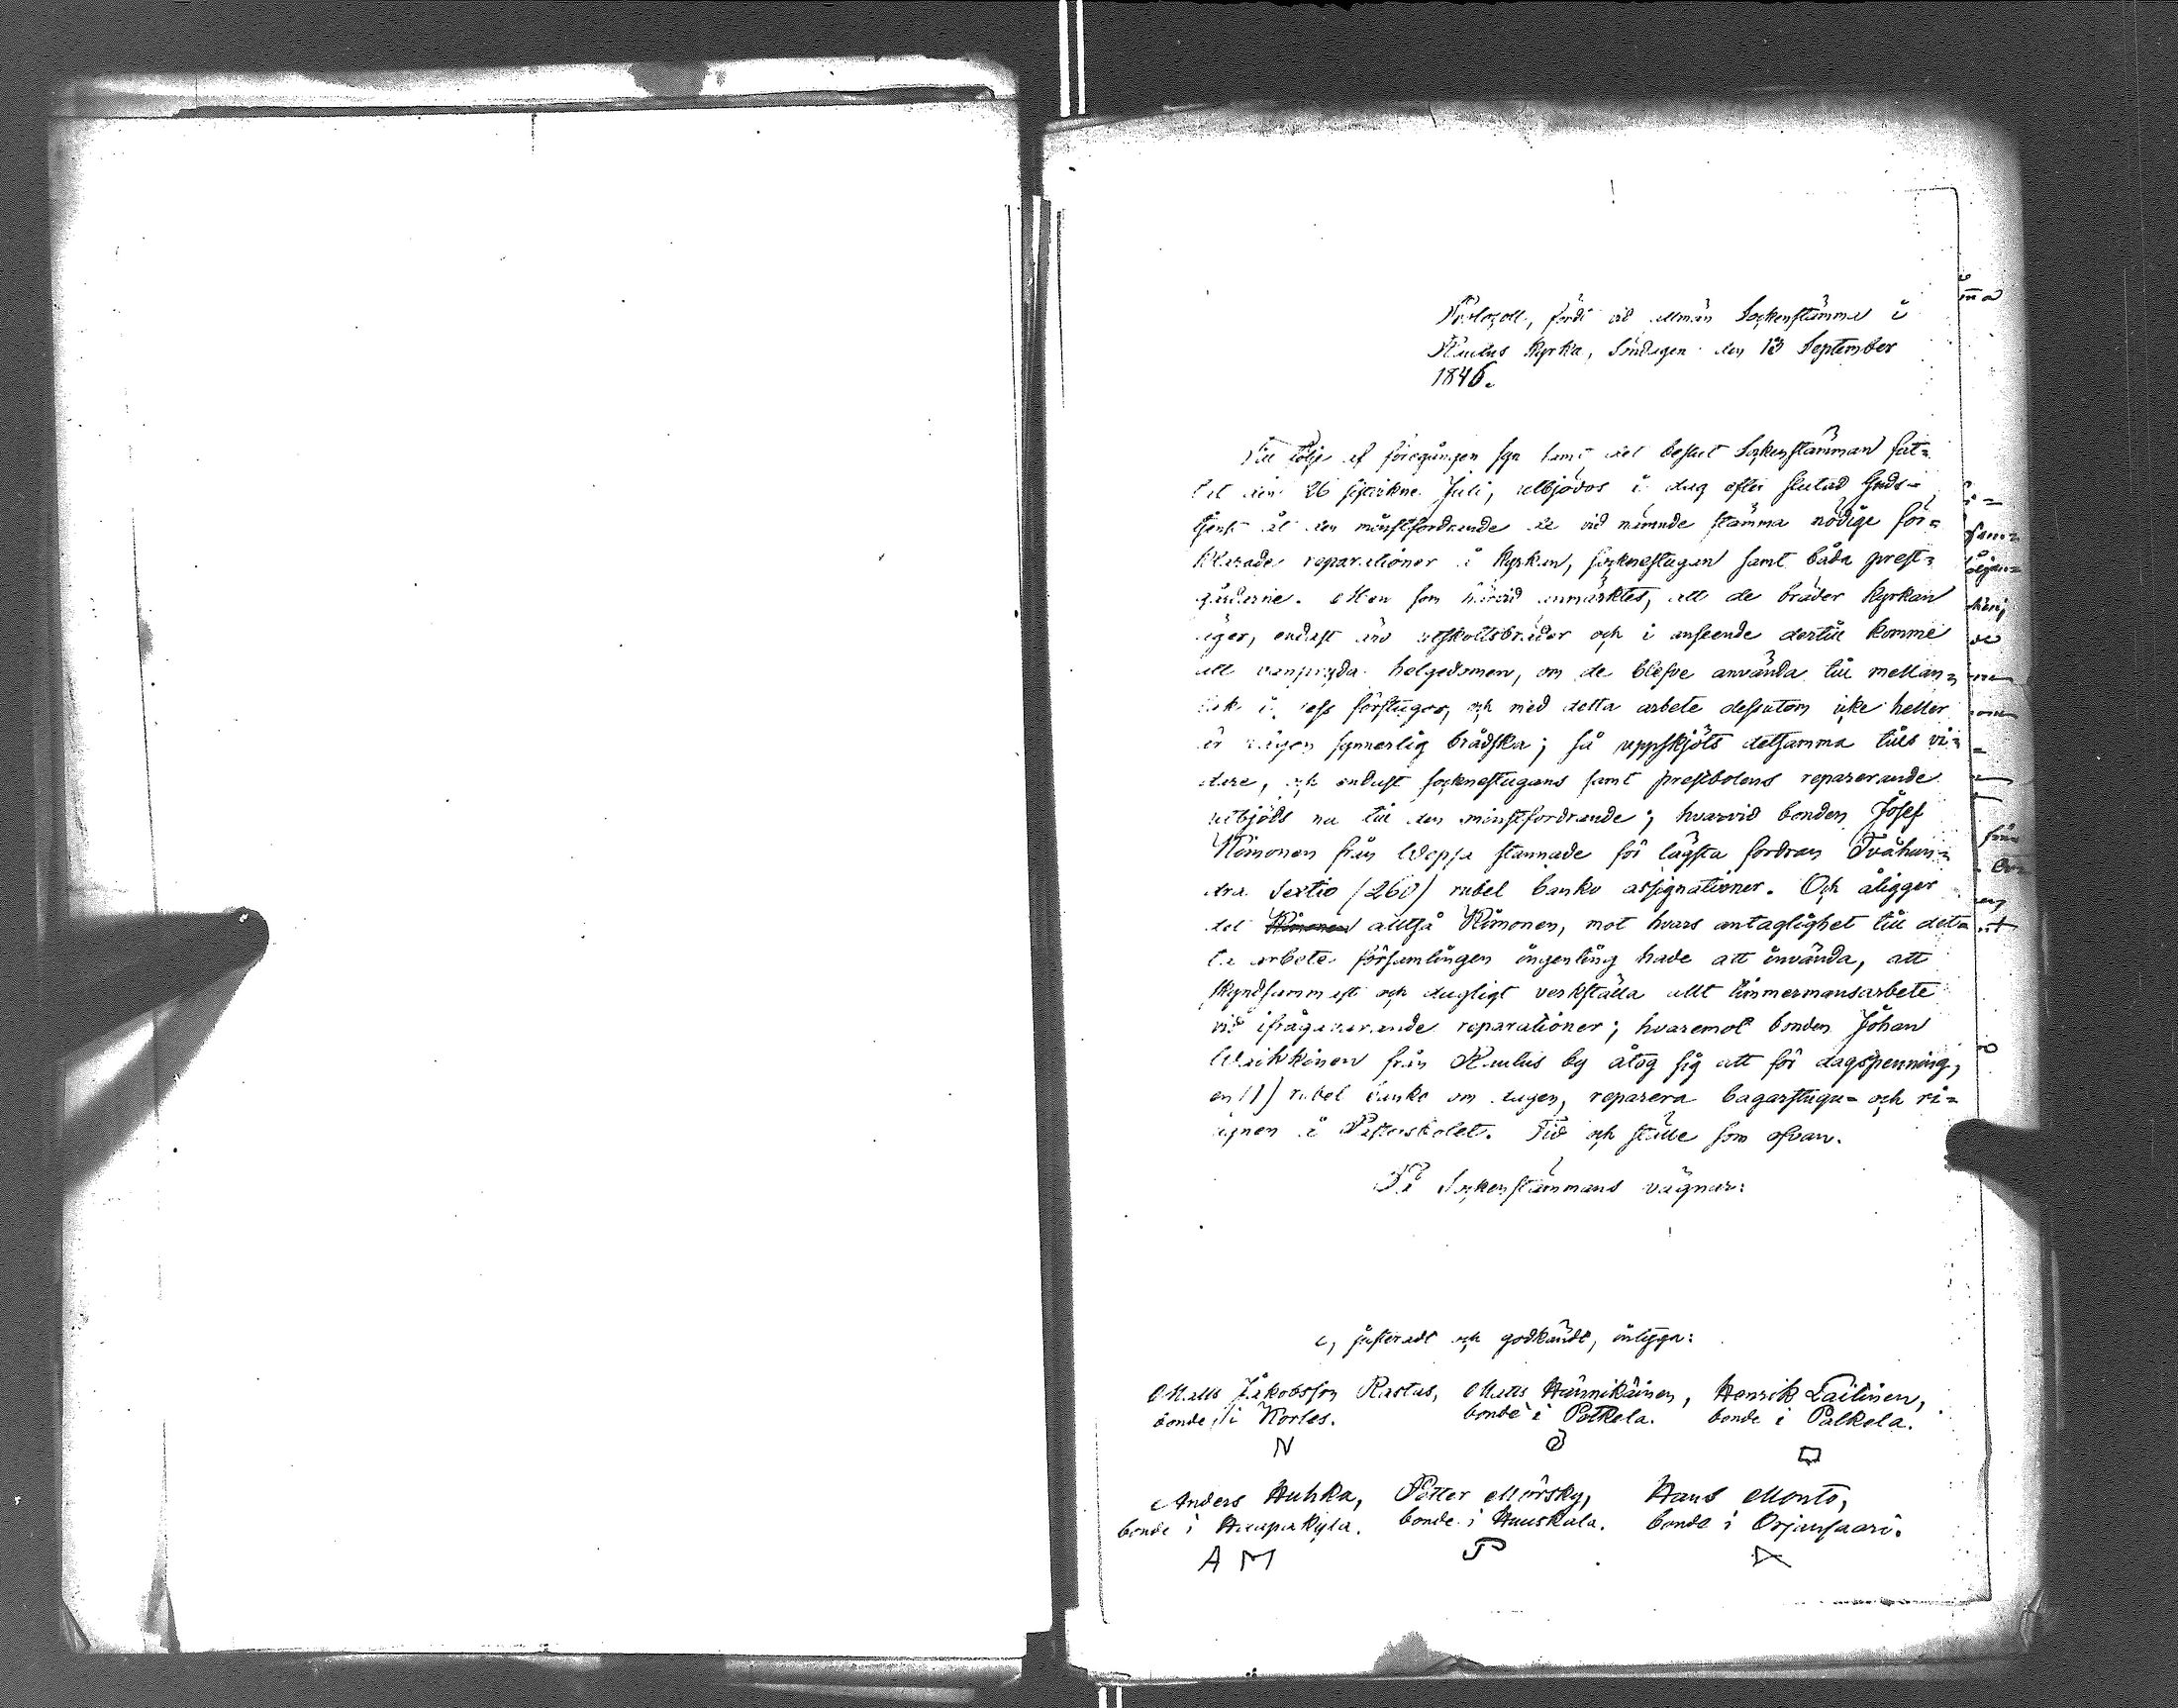 Protocoll, fördt vid allmän Sockenstämma i
Rautus kyrka, Söndagen den 13 September
1846.
Till följe af föregången syn samt det beslut Sockenstämman fat-
tat den 26 sistvikne Juli, utbjödos i dag efter slutad Guds-
tjenst åt den minstfordrande de vid nämnde stämma nödige för-
klarade reparationer i kyrkan, socknestugan samt båda prest-
gårderne. Men som härvid anmärktes, att de bräder kyrkan
äger, endast äro utskottsbräder och i anseende dertill komme
att vanpryda helgedomen, om de blefve använda till mellan-
tak i dess förstugor, och med detta arbete dessutom icke heller
är någon synnerlig brådska; så uppskjöts detsamma tills vi-
dare, och endast socknestugans samt prestbolens reparerande
utbjöds nu till den minstfordrande; hvarvid bonden Josef
Kimonen från Wepsa stannade för lägsta fordran Tvåhun-
dra Sextio (260) rubel banko assignationer. Och åligger
det Kimonen alltså Kimonen, mot hvars antaglighet till det-
ta arbete församlingen ingenting hade att invända, att
skyndsammast och dugligt verkställa allt timmermansarbete
vid ifrågavarande reparationer; hvaremot bonden Johan
Weikkinen från Rautus by åtog sig att för dagspenning,
en (1) rubel banko om dagen, reparera bagarstugu- och ri-
ugnen i Pastorsbolet. Tid och ställe som ofvan.
På Sockenstämmans vägnar:
justeradt och godkändt, intyga:
Matts Jakobsson Rastas, Matts Hännikäinen, Henrik Laitinen,
bonde i Korles. bonde i Potkela. bonde i Palkela.
N
Anders Huhka, Petter Mörsky, Hans Monto,
bonde i Haapakylä. bonde i Huuskala. bonde i Orjansaari.
A M P